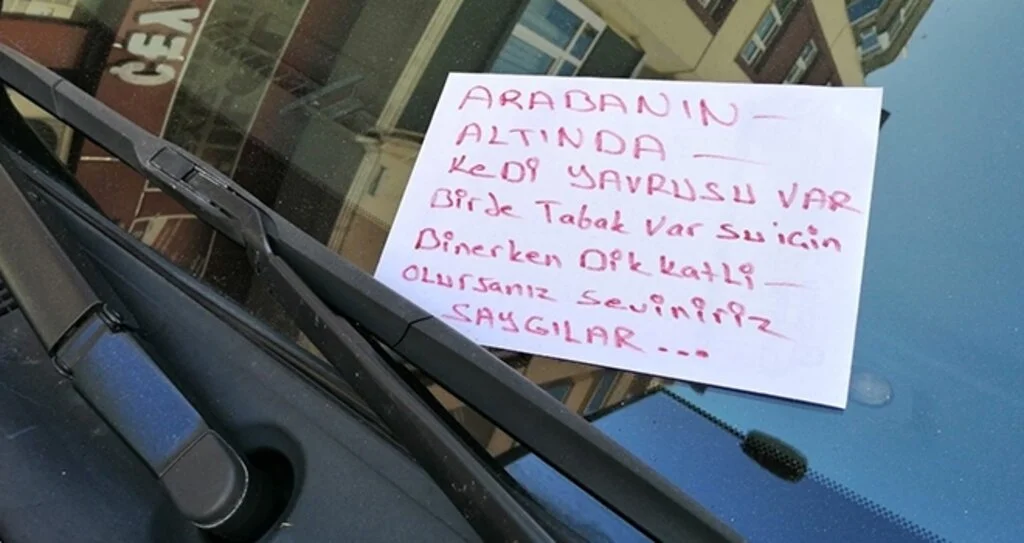 ARABANIN -
ALTINDA -
KEDİ YAVRUSU VAR
Birde Tabak Var su için
Binerken Dikkatli -
OLURsanız seviniriz
SAYGILAR ...